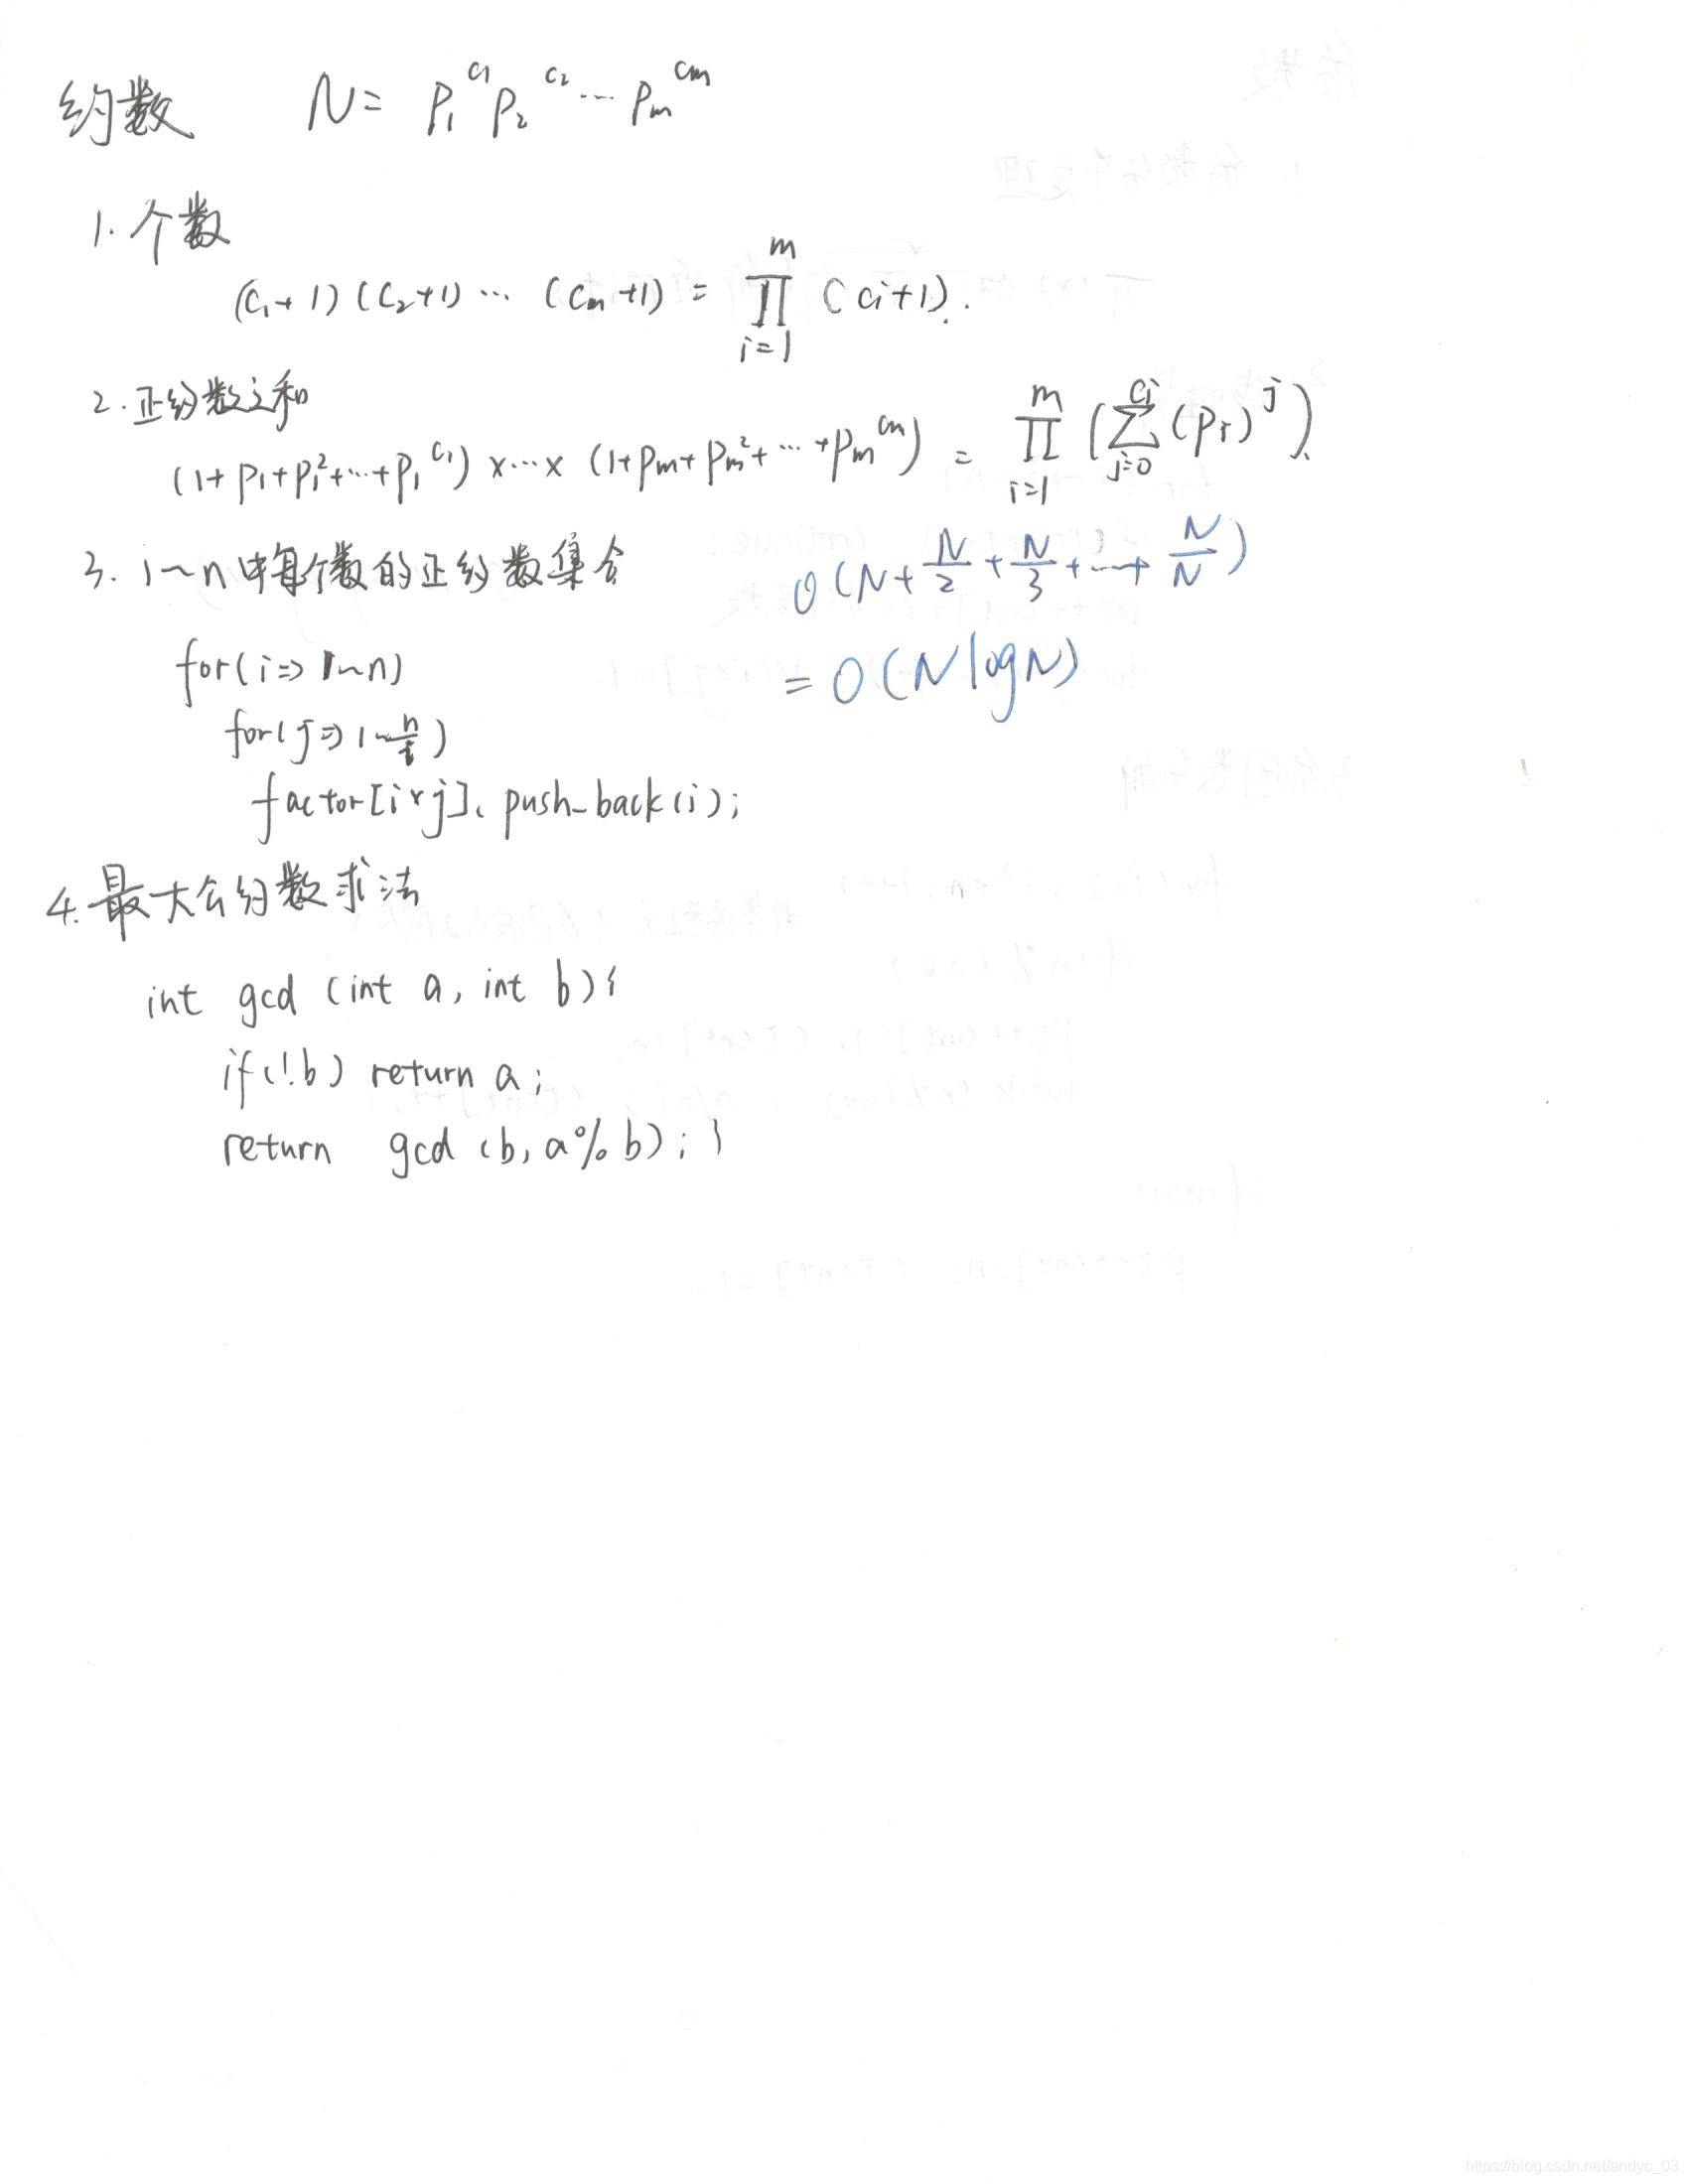 约数 N = p₁^c₁ p₂^c₂ ··· pₘ^cₘ
1. 个数
(c₁+1)(c₂+1)···(cₘ+1) = ∏_{i=1}^{m} (ci+1).
2. 正约数之和
(1+p₁+p₁²+···+p₁^c₁)×···×(1+pₘ+pₘ²+···+pₘ^cₘ) = ∏_{i=1}^{m} (∑_{j=0}^{ci} (pi)^j).
3. 1~n中每个数的正约数集合 O(N+N/2+N/3+···+N/N)
for(i=>1~n) = O(NlogN)
for(j=>1~n/i)
factor[i*j].push_back(i);
4.最大公约数求法
int gcd (int a, int b){
if(!b) return a;
return gcd (b, a%b); }
https://blog.csdn.net/andyc_03